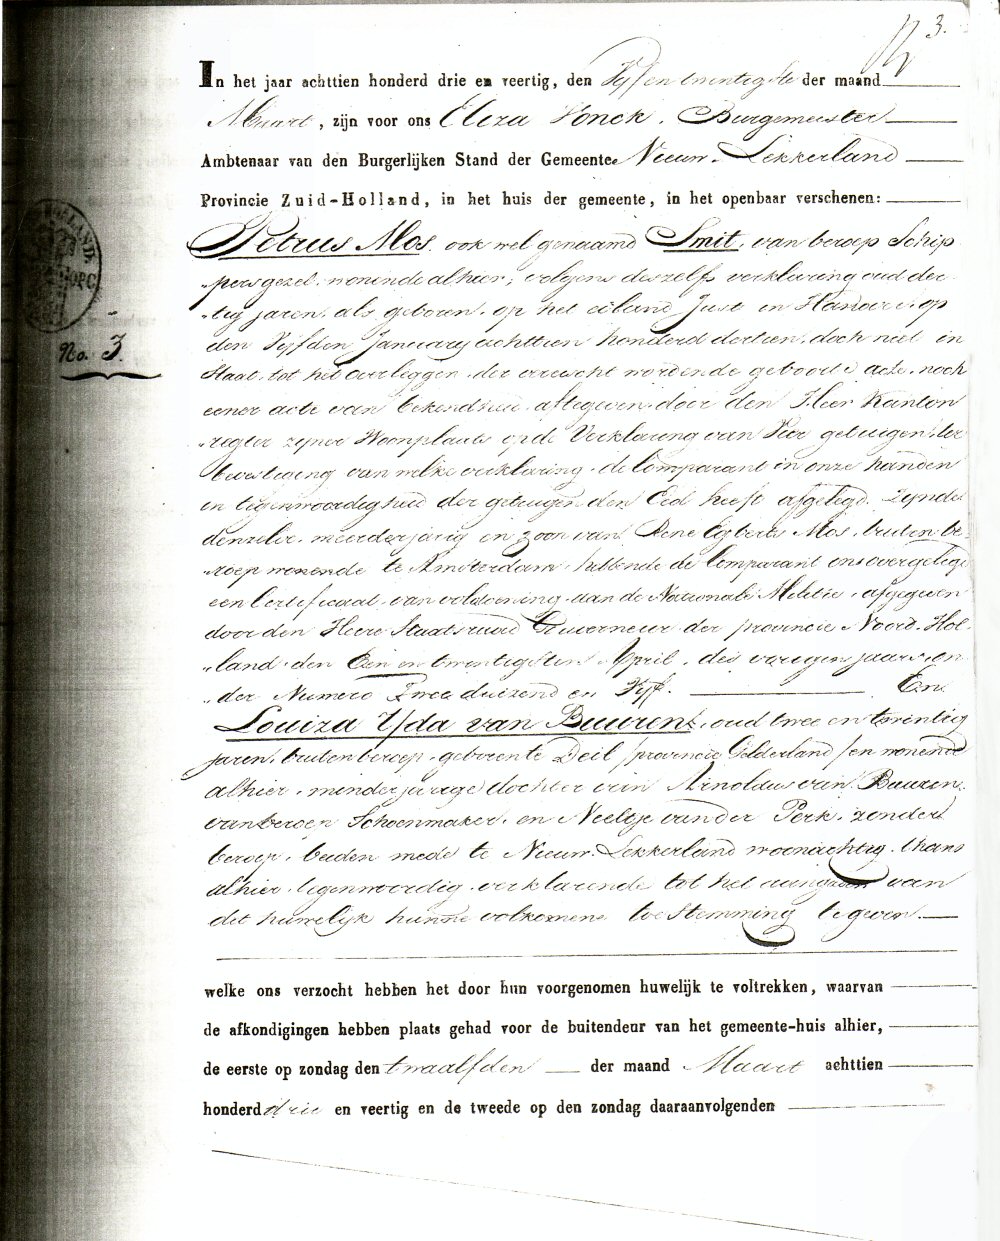 3.
In het jaar achttien honderd drie en veertig, den Vijf en twintigste der maand
Maart, zijn voor ons Eliza Vonck, Burgemeester
Ambtenaar van den Burgerlijken Stand der Gemeente Nieuw-Lekkerland
Provincie Zuid-Holland, in het huis der gemeente, in het openbaar verschenen:
Petrus Mos, ook wel genaamd Smit, van beroep Schip
persgezel, wonende alhier, volgens deszelfs verklaring oud der
tig jaren, als geboren op het eiland Just in Hanover op
den Vijfden January achttien honderd dertien, doch niet in
Staat tot het overleggen der vereischt wordende geboorte acte, noch
eener acte van bekendheid afgegeven door den Heer Kanton
regter zijner Woonplaats op de Verklaring van Vier getuigen, ter
bevestiging van welke verklaring de Comparant in onze handen
in tegenwoordigheid der getuigen den Eed heeft afgelegd. Zijnde
dezelve meerderjarig en zoon van Rene Egberts Mos, buiten be-
roep wonende te Amsterdam, hebbende de Comparant ons overgelegd
een Certificaat van voldoening aan de Nationale Militie, afgegeven
door den Heere Staatsraad Gouverneur der provincie Noord-Hol-
land den Een en twintigsten April des vorigen jaars on
der Numero Twee duizend en Vijf. En
No. 3.
Louiza Yda van Buuren, oud twee en twintig
jaren, buiten beroep, geboren te Deil /provincie Gelderland/ en wonende
alhier, minderjarige dochter van Arnoldus van Buuren,
van beroep Schoenmaker, en Neeltje van der Perk, zonder
beroep, beiden mede te Nieuw-Lekkerland woonachtig, thans
alhier tegenwoordig, verklarende tot het aangaan van
dit huwelijk hunne volkomene toestemming te geven.
welke ons verzocht hebben het door hun voorgenomen huwelijk te voltrekken, waarvan
de afkondigingen hebben plaats gehad voor de buitendeur van het gemeente-huis alhier,
de eerste op zondag den twaalfden der maand Maart achttien
honderd drie en veertig en de tweede op den zondag daaraanvolgenden